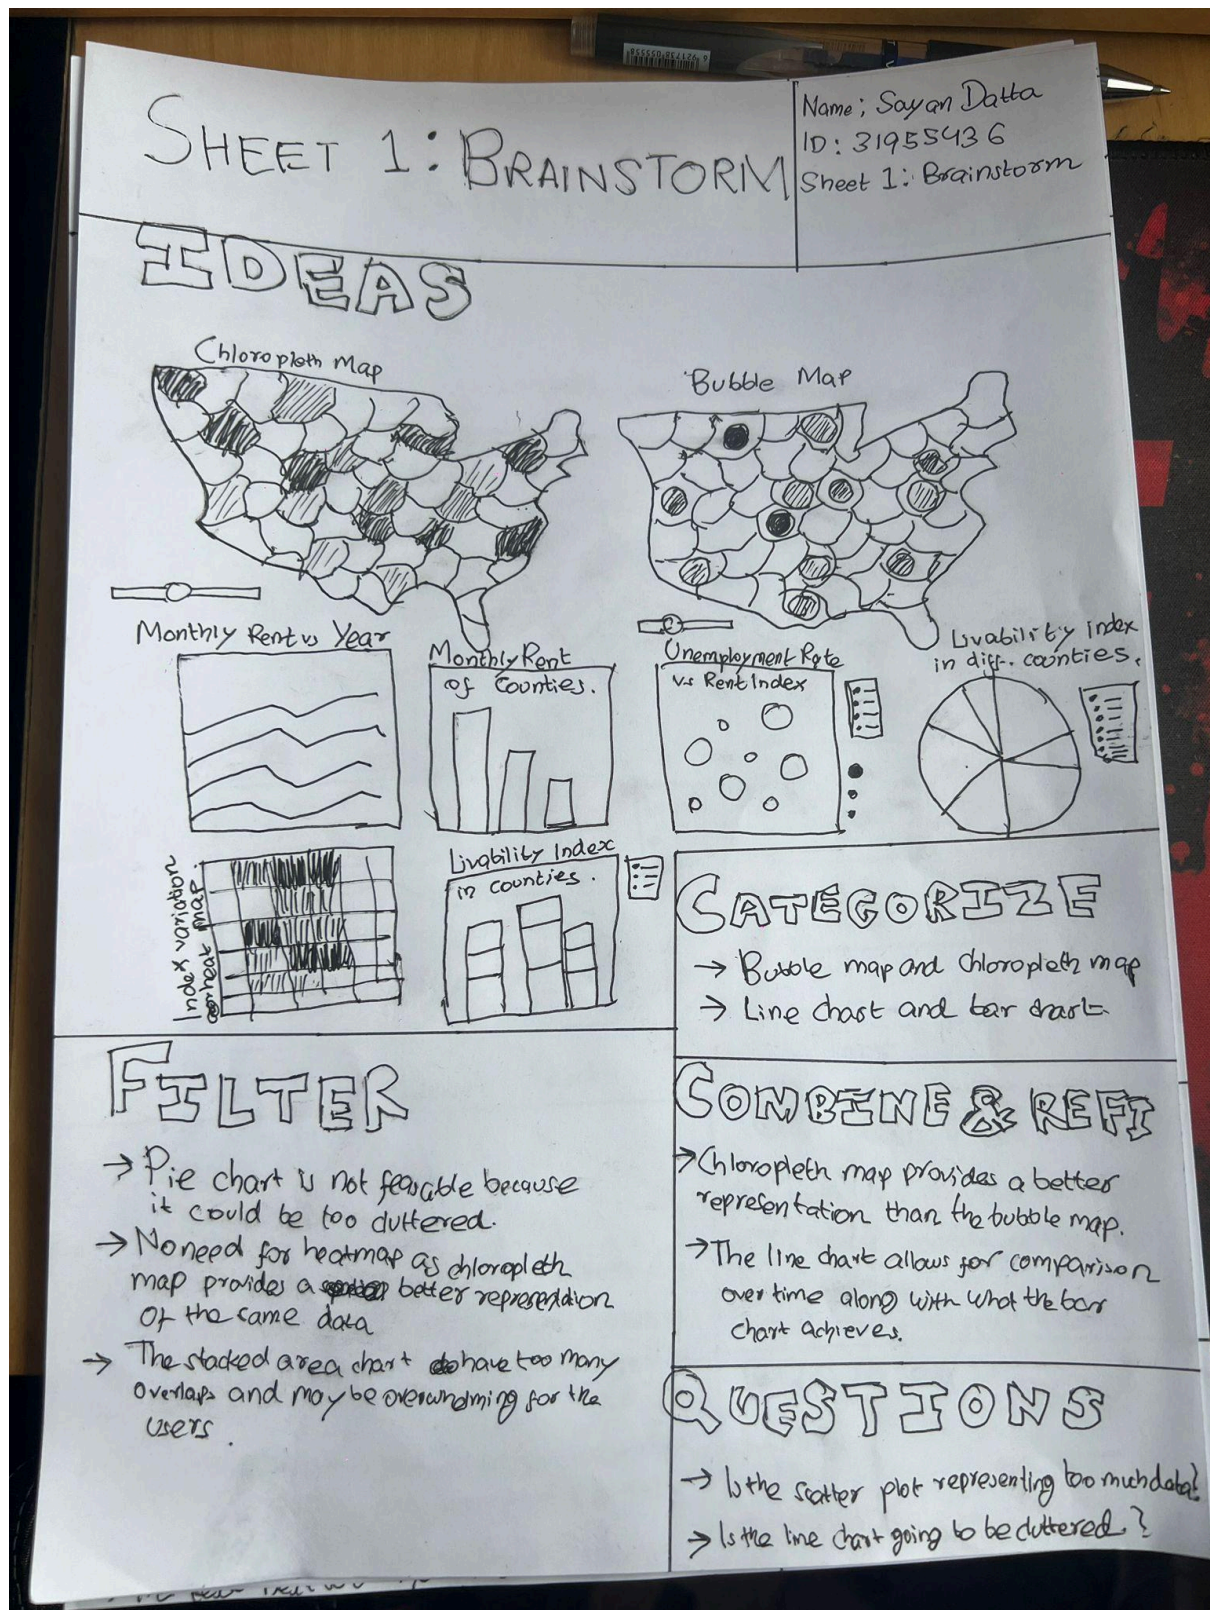 SHEET 1: BRAINSTORM
Name: Sayan Datta
ID: 31955436
Sheet 1: Brainstorm
IDEAS
Chloropleth Map
Bubble Map
Monthly Rent vs Year
Monthly Rent
of Counties.
Unemployment Rate
vs Rent Index
Livability index
in diff. counties.
Index variation
heat map.
Livability Index
in counties.
CATEGORIZE
→ Bubble map and chloropleth map
→ Line chart and bar chart.
FILTER
→ Pie chart is not feasable because
it could be too cluttered.
→ No need for heatmap as chloropleth
map provides a better representation
of the same data
→ The stacked area chart have too many
overlaps and may be overwhelming for the
users.
COMBINE & REFI
→ Chloropleth map provides a better
representation than the bubble map.
→ The line chart allows for comparison
over time along with what the bar
chart achieves.
QUESTIONS
→ Is the scatter plot representing too much data?
→ Is the line chart going to be cluttered?
6921738055558